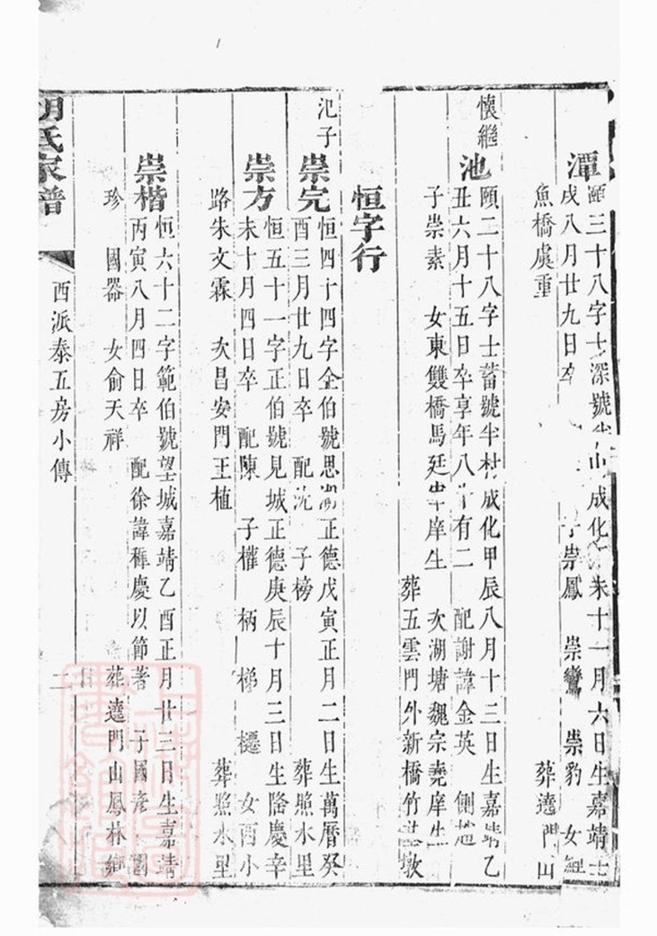 潭 頤三十八字士深號半山成化 未十一月六日生嘉靖
戌八月廿九日卒 子崇鳳 崇鸞 崇豹 女
魚橋虞重 葬遶門山
懷繼
池 頤二十八字士蓄號半村成化甲辰八月十三日生嘉靖乙
丑六月十五日卒享年八十有二 配謝諱金英 側趙
子崇素 女東雙橋馬廷 庠生 次湖塘魏宗堯庠生
葬五雲門外新橋竹 墩
恒字行
氾子
崇完 恒四十四字全伯號思湖正德戊寅正月二日生萬曆癸
酉三月廿九日卒 配沈 子榜 葬照水里
崇方 恒五十一字正伯號見城正德庚辰十月三日生隆慶辛
未十月四日卒 配陳 子權 柄 梯 櫏 女西小
路朱文霖 次昌安門王植 葬照水里
崇楷 恒六十二字範伯號望城嘉靖乙酉正月廿三日生嘉靖
丙寅八月四日卒 配徐諱 慶以節著 子國彥 國
珍 國器 女俞天祥 葬遶門山鳳林鄉
胡氏家譜
西派泰五房小傳
二